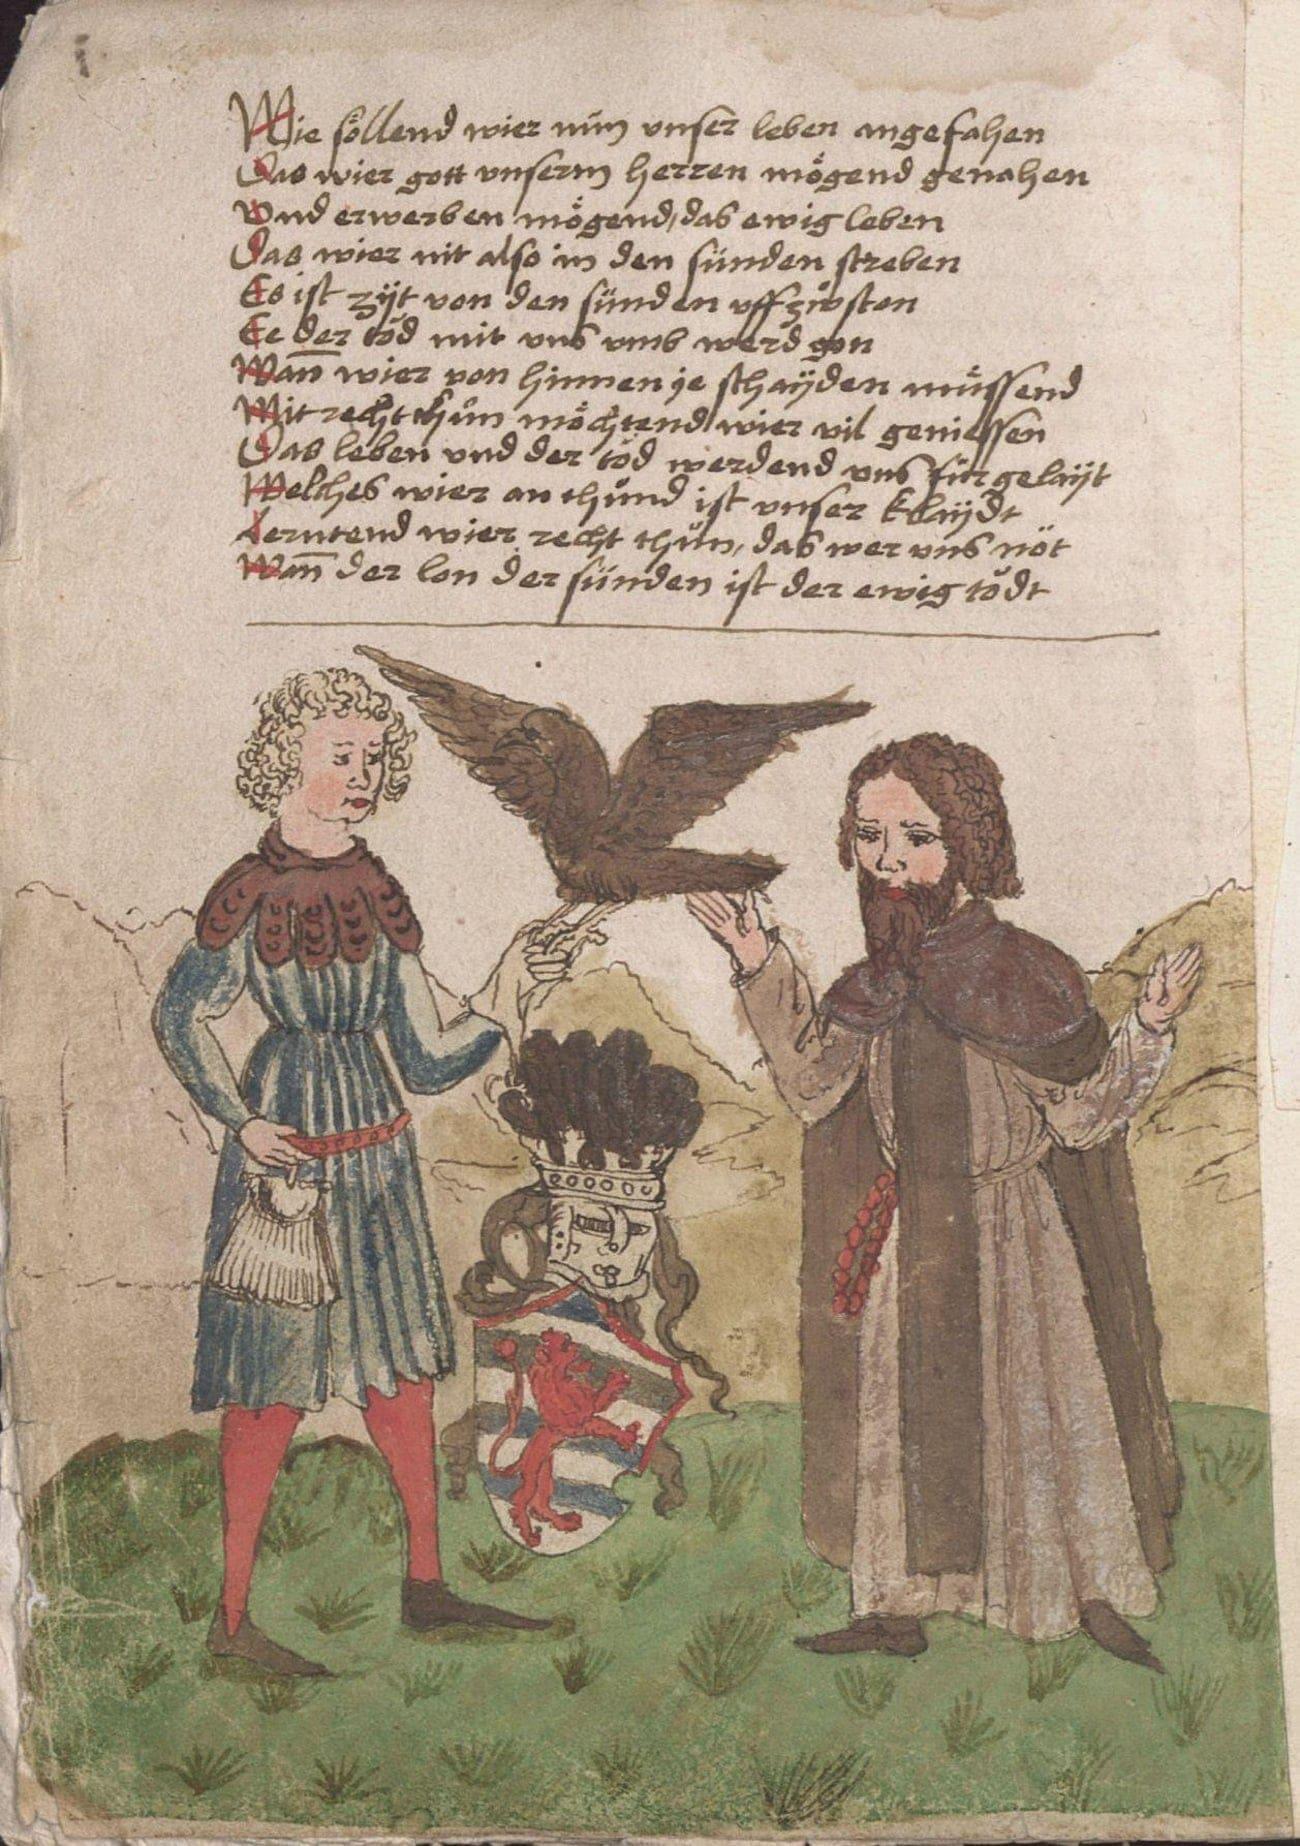 Wie söllend wier nun vnser leben angefahen
Das wier gott vnserm herren mögend genahen
Vnd erwerben mögend, das ewig leben
Das wier nit also in den sünden streben
Es ist zÿt von den sünden vffzůston
Ee der tod mit vns vmb werd gon
Wan̄ wier von hinnen ie schaÿden müssend
Mit recht thůn möchtend wier vil geniessen
Das leben vnd der tod werdend vns für gelaÿt
Welches wier an thůnd ist vnser klaÿdt
Lerntend wier recht thůn, das wer vns nöt
Wan̄ der lon der sünden ist der ewig todt